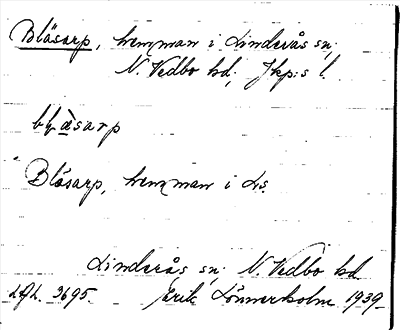 Bläsarp, hemman i Linderås sn;
N. Vedbo hd; Jkp:s l.
blàsarp
Blåsarp, hemman i Ls.
Linderås sn; N. Vedbo hd
LGL. 3695. Erik Lönnerholm 1939